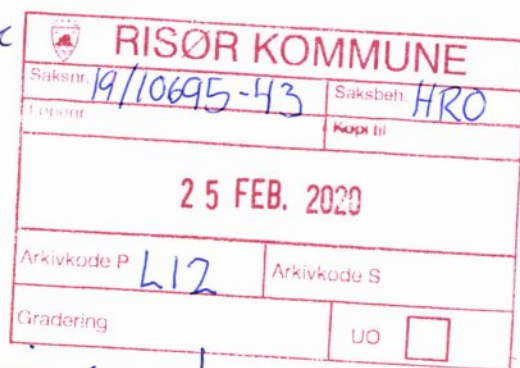 RISØR KOMMUNE
Saksnr. 19/10695-43 Saksbeh. HRO
Kopi til
25 FEB. 2020
Arkivkode P L12 Arkivkode S
Gradering UO